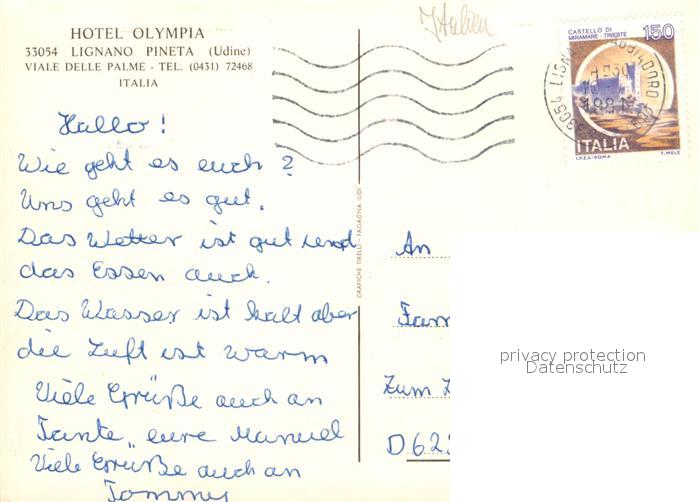 HOTEL OLYMPIA
33054 LIGNANO PINETA (Udine)
VIALE DELLE PALME - TEL. (0431) 72468
ITALIA
Italien
CASTELLO DI
MIRAMARE - TRIESTE
150
ITALIA
I.P.Z.S.-ROMA
T. MELE
33054 LIGNA
Hallo!
Wie geht es euch?
Uns geht es gut.
Das Wetter ist gut und
das Essen auch.
Das Wasser ist kalt aber
die Luft ist warm
Viele Grüße auch an
Tante, eure Manuel
Viele Grüße auch an
Tommy
GRAFICHE TIRELLI - FAGAGNA (UD)
An
Fam
Zum
D 62
privacy protection
Datenschutz